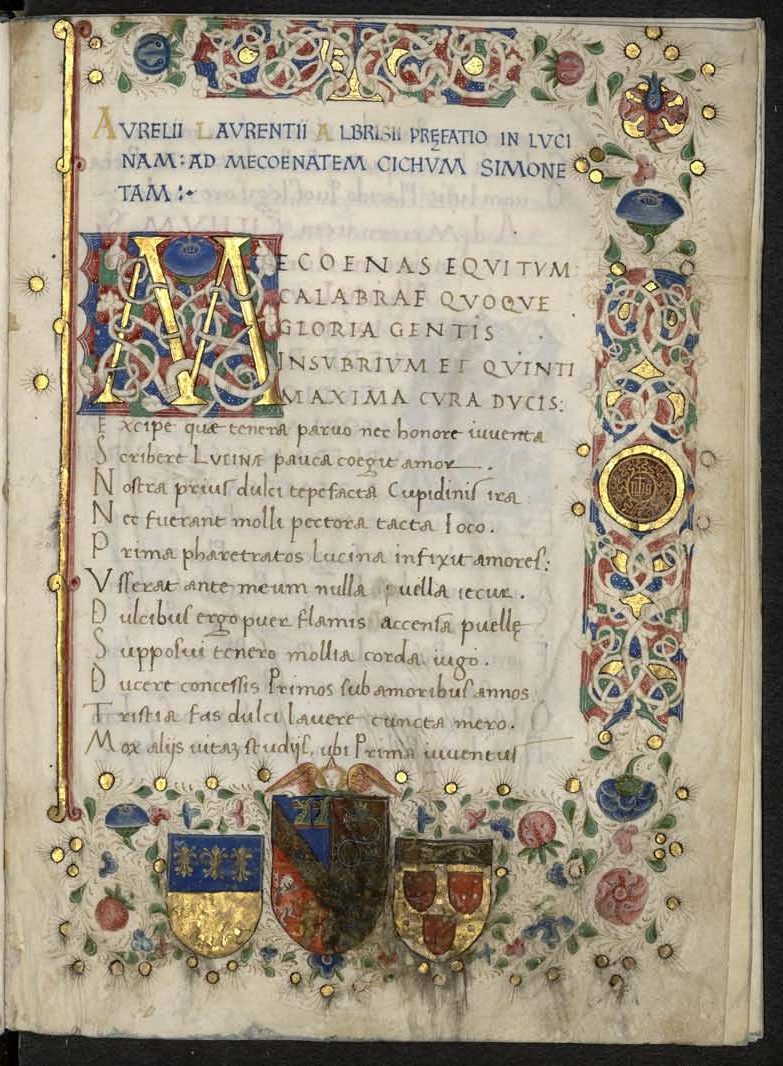 AVRELII LAVRENTII ALBRISII PRĘFATIO IN LVCI
NAM: AD MECOENATEM CICHVM SIMONE
TAM :•
MECOENAS EQVITVM
CALABRAE QVOQVE
GLORIA GENTIS
INSVBRIVM ET QVINTI
MAXIMA CVRA DVCIS:
Excipe quæ tenera paruo nec honore iuuenta
Scribere LVCINÆ pauca coegit amor.
Nostra prius dulci tepefacta Cupidinis ira
Nec fuerant molli pectora tacta Ioco.
Prima pharetratos Lucina infixit amores:
Vsserat ante meum nulla puella iecur.
Dulcibus ergo puer flamis accensa puellę
Supposui tenero mollia corda iugo.
Ducere concessis Primos sub amoribus annos
Tristia fas dulci lauere cuncta mero.
Mox alijs uitaz studijs, ubi Prima iuuentus
ihs